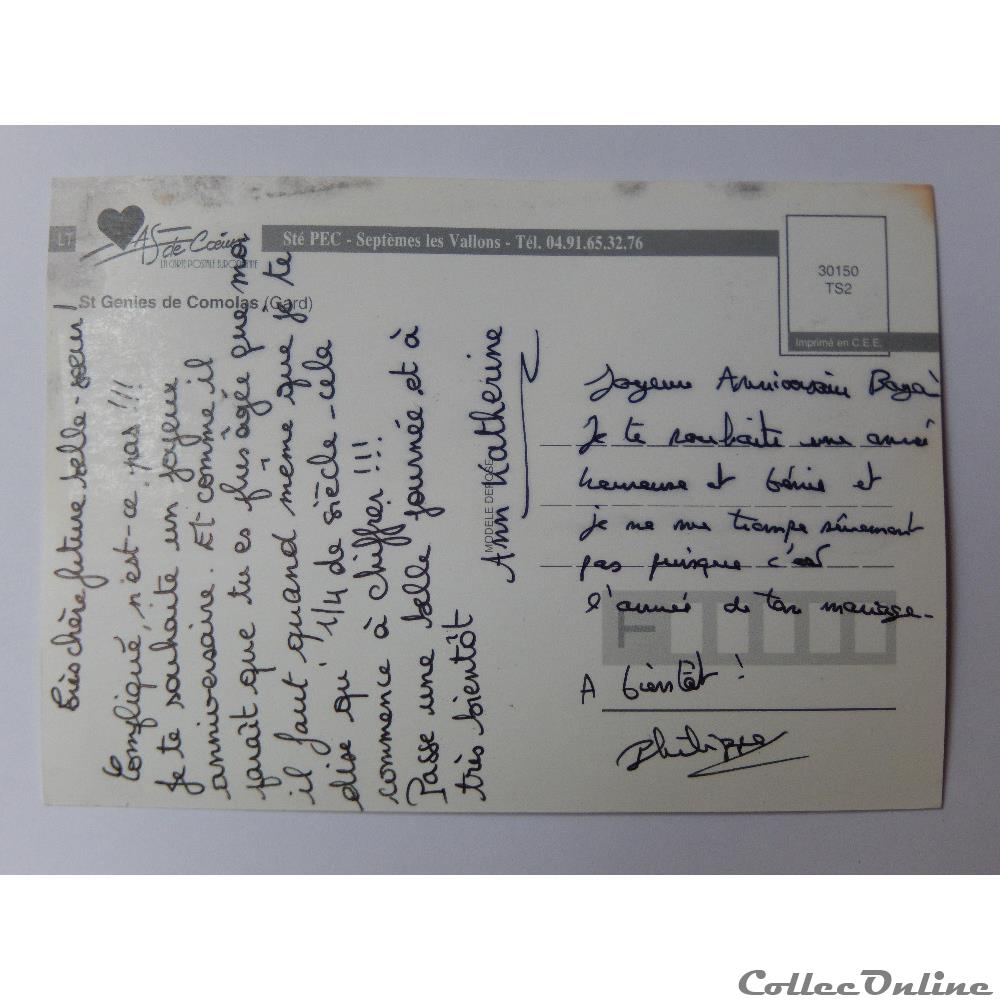 LT
AS de Cœur
LA CARTE POSTALE EUROPÉENNE
Sté PEC - Septèmes les Vallons - Tél. 04.91.65.32.76
St Genies de Comolas (Gard)
30150
TS2
Imprimé en C.E.E.
MODELE DEPOSE
Très chère future belle-sœur!
Compliqué, n'est-ce pas!!!
Je te souhaite un joyeux
anniversaire. Et comme il
paraît que tu es plus âgé que moi
il faut quand même que je te
dise qu' 1/4 de siècle - cela
commence à chiffrer!!!
Passe une belle journée et à
très bientôt
Ann Katherine
Joyeux Anniversaire
Je te souhaite une année
heureuse et bénie et
je ne me trompe sûrement
pas puisque c'est
l'année de ton mariage.
A bientôt !
Philippe
CollecOnline